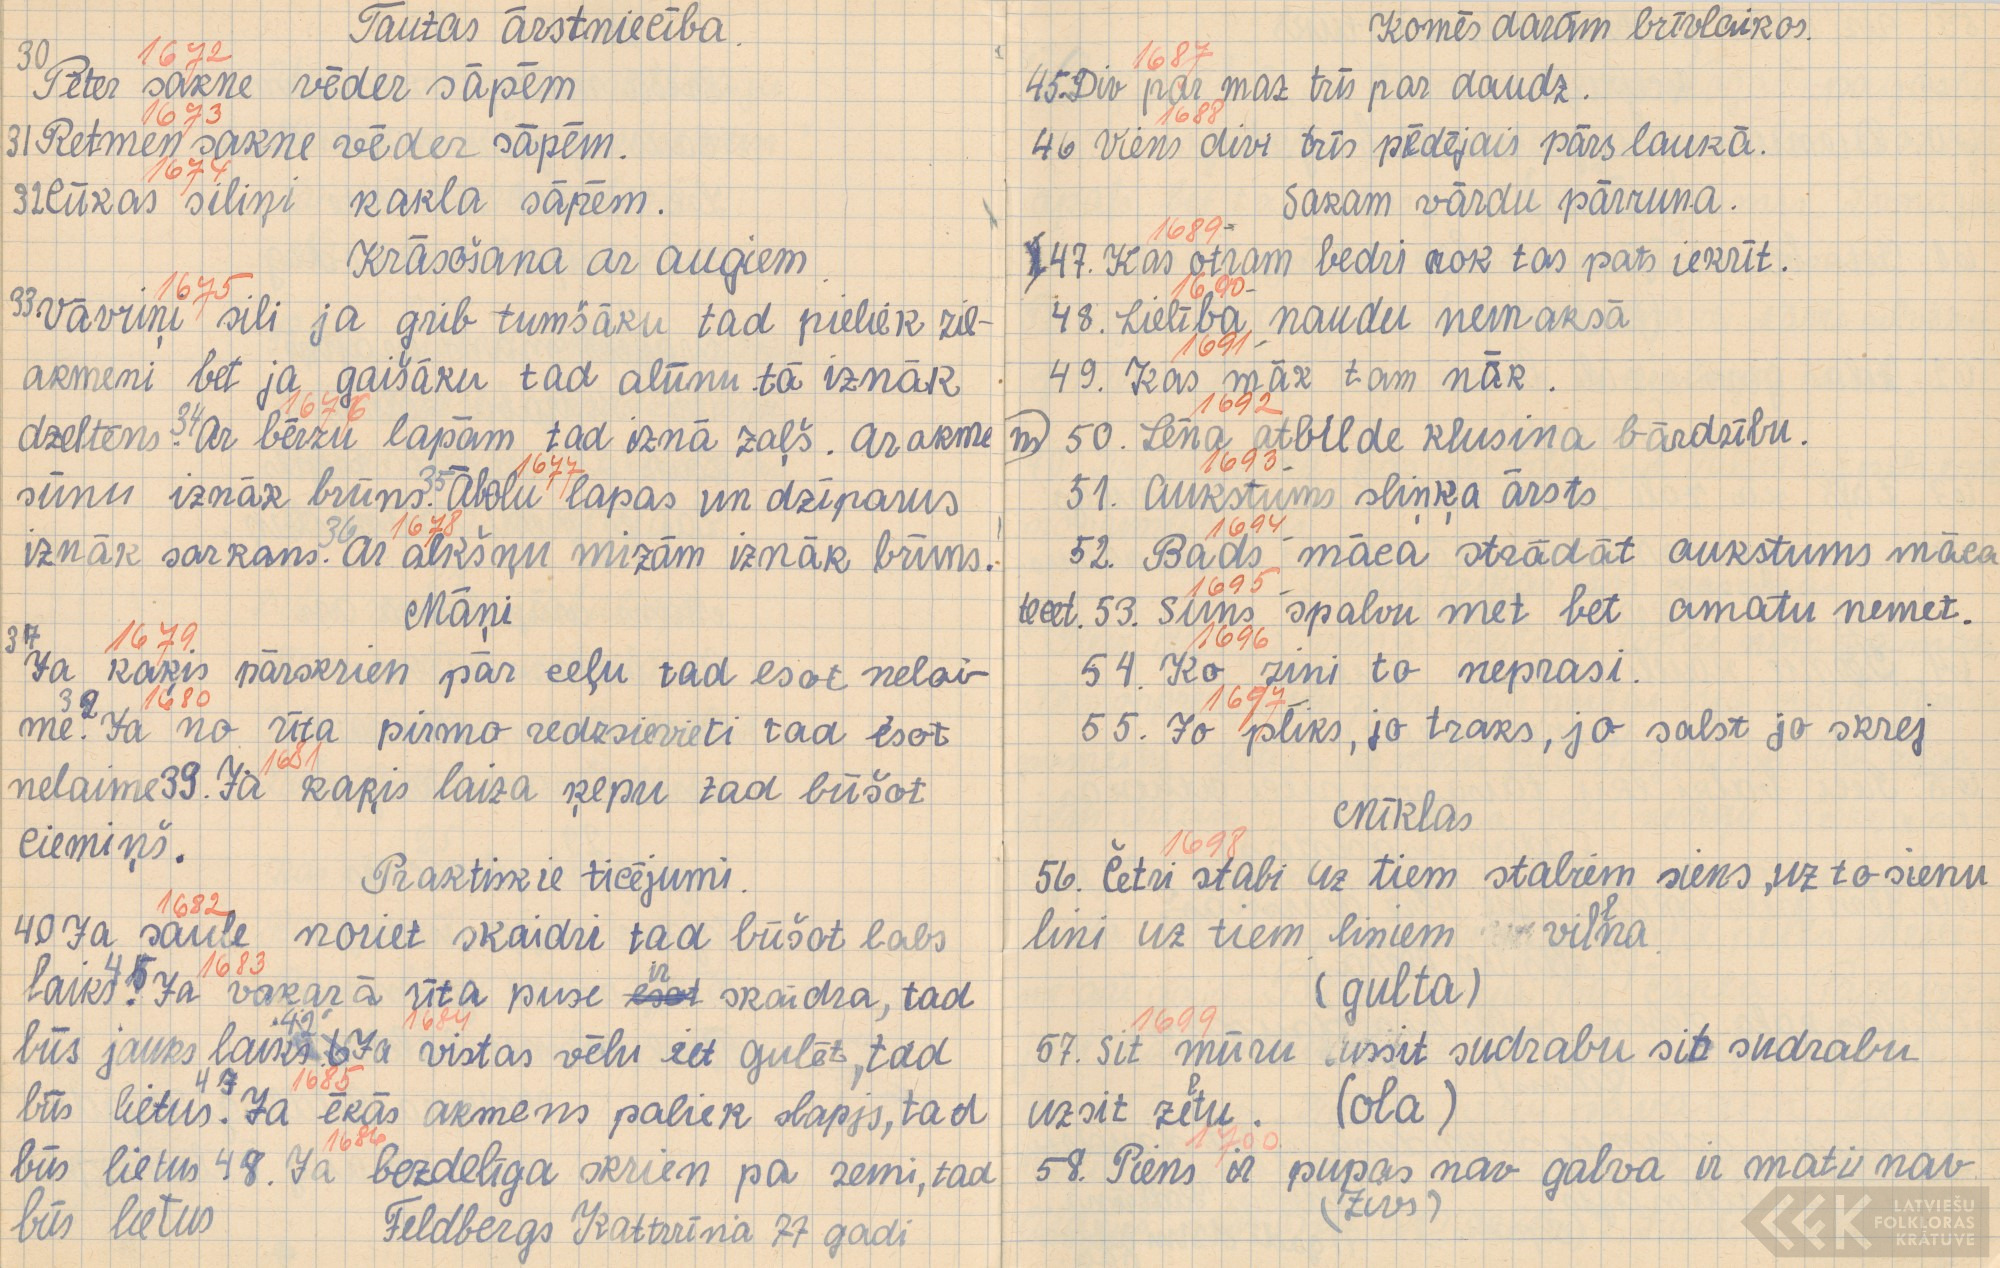 Tautas ārstniecība.
30 1672
Pēter sakne vēder sāpēm
1673
31 Retmen sakne vēder sāpēm.
1674
32 Cūkas siliņi kakla sāpēm.
Krāsošana ar augiem
1675
33 Vāvriņi sili ja grib tumšāku tad pieliek zil-
akmeni bet ja gaišāku tad alūnu tā iznāk
1676
dzeltēns. 34 Ar bērzu lapām tad iznā zaļš. Ar akme
1677
sūnu iznāk brūns. 35 Ābolu lapas un dzīparus
1678
iznāk sarkans. 36 Ar alkšņu mizām iznāk brūns.
Māņi
37 1679
Ja kaķis pārskrien pār ceļu tad esot nelai-
1680
me. 38 Ja no rīta pirmo redz sievieti tad esot
1681
nelaime 39. Ja kaķis laiza ķepu tad būšot
ciemiņš.
Praktiskie ticējumi.
1682
40 Ja saule noriet skaidri tad būšot labs
1683
laiks. 41 Ja vakarā rīta puse ir skaidra, tad
1684
būs jauks laiks 42 Ja vistas vēlu iet gulēt, tad
1685
būs lietus. 47 Ja ēkās akmens paliek slapjs, tad
1686
būs lietus 48. Ja bezdelīga skrien pa zemi, tad
būs lietus Feldbergs Kattrīna 77 gadi
Komēs darām brīvlaikos.
1687
45. Div par maz trīs par daudz.
1688
46 Viens divi trīs pēdējais pārs laukā.
Sakam vārdu pārruna.
1689
47. Kas otram bedri rok tas pats iekrīt.
1690
48. Lielība naudu nemaksā
1691
49. Kas māk tam nāk.
1692
m) 50. Lēna atbilde klusina bārdzību.
1693
51. Aukstums sliņķa ārsts
1694
52. Bads māca strādāt aukstums māca
1695
tecet. 53. Suns spalvu met bet amatu nemet.
1696
54. Ko zini to neprasi.
1697
55. Jo pliks, jo traks, jo salst jo skrej
Mīklas
1698
56. Četri stabi uz tiem stabiem siens, uz to sienu
lini uz tiem liniem vilna
(gulta)
1699
57. Sit mūru uzsit sudrabu sit sudrabu
uzsit zeltu. (ola)
1700
58. Piens ir pupas nav galva ir matu nav
(Zivs)
LATVIEŠU
FOLKLORAS
KRĀTUVE